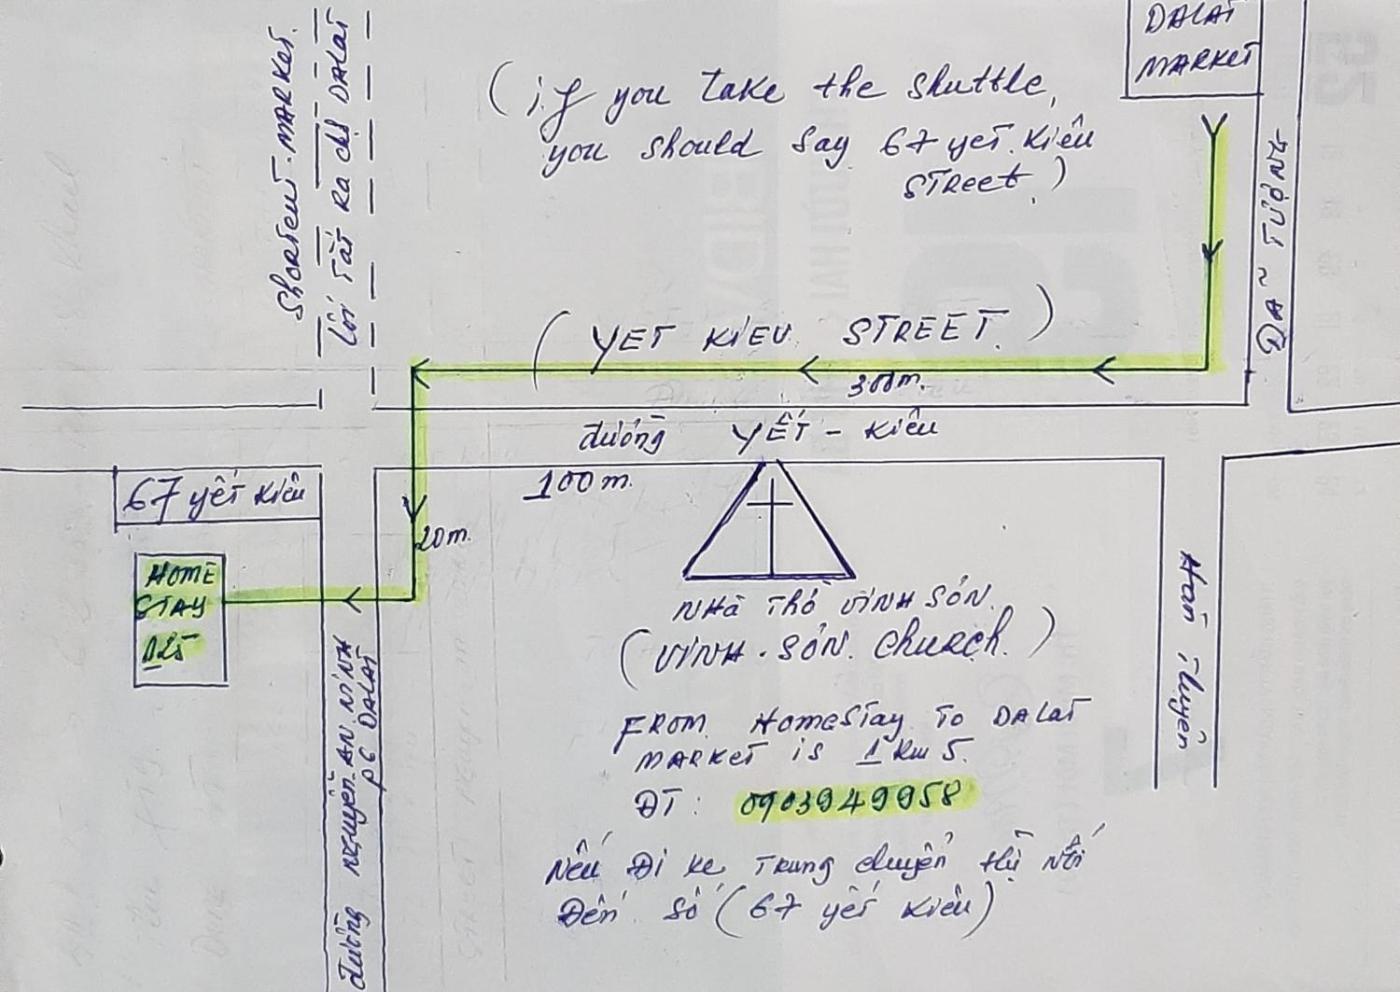 DALAT
MARKET
(if you take the shuttle,
you should say 67 yết Kiêu
STReet.)
Shorteut MARKet.
Lối TắT RA chợ DALAT
( YET KIEU STREET. )
300m.
đường YẾT - Kiêu
100m.
67 yết Kiêu
20m.
HOME
STAY
NHÀ THỜ VINH SƠN.
(VINH.SƠN. CHURCh.)
Hàn Thuyên
đường NGuyễn.AN NINH
P6 DALAT
FROM HomeStay To DALAT
MARKET is 1 Km 5.
ĐT: 0903949958
Nếu Đi xe Trung chuyển thì Nói
Đến số (67 yết Kiêu)